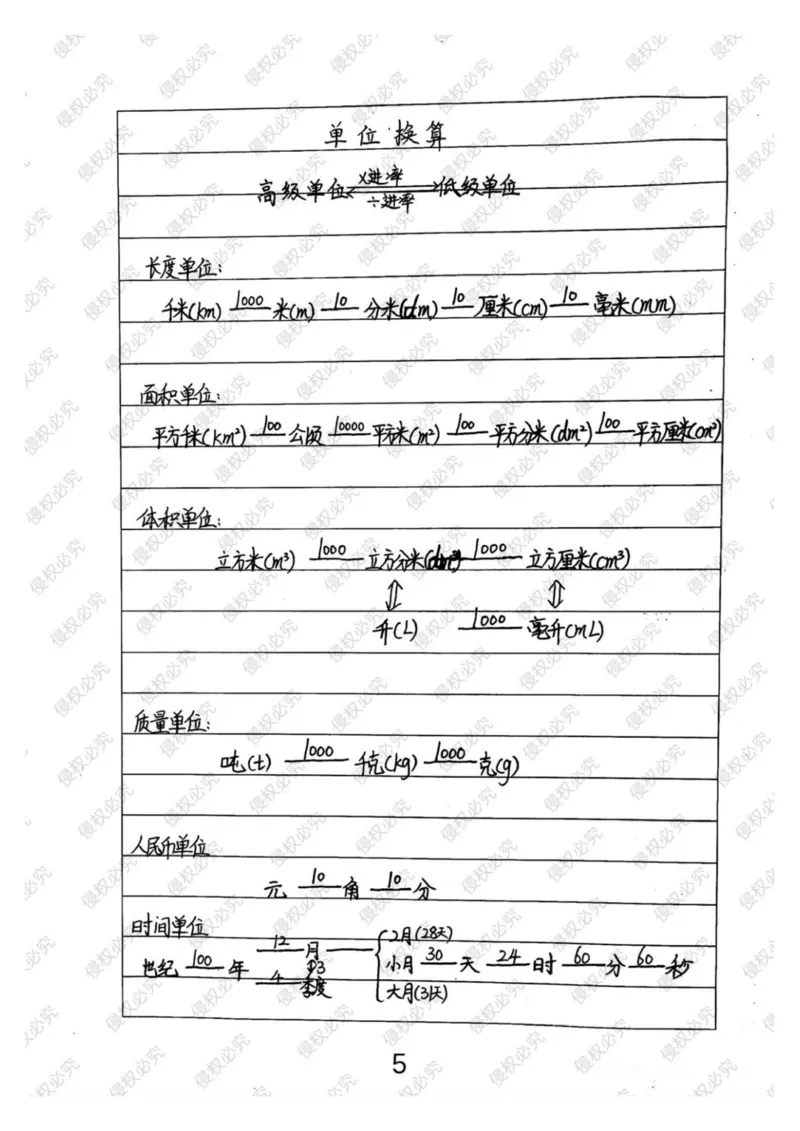 单位换算
高级单位 ×进率 ÷进率 低级单位
长度单位:
千米(km) 1000 米(m) 10 分米(dm) 10 厘米(cm) 10 毫米(mm)
面积单位:
平方千米(km²) 100 公顷 10000 平方米(m²) 100 平方分米(dm²) 100 平方厘米(cm²)
体积单位:
立方米(m³) 1000 立方分米(dm³) 1000 立方厘米(cm³)
升(L) 1000 毫升(mL)
质量单位:
吨(t) 1000 千克(kg) 1000 克(g)
人民币单位
元 10 角 10 分
时间单位
世纪 100 年 12 月 2月(28天)
小月 30 天 24 时 60 分 60 秒
4 季度 ↕3 大月(31天)
5
侵权必究